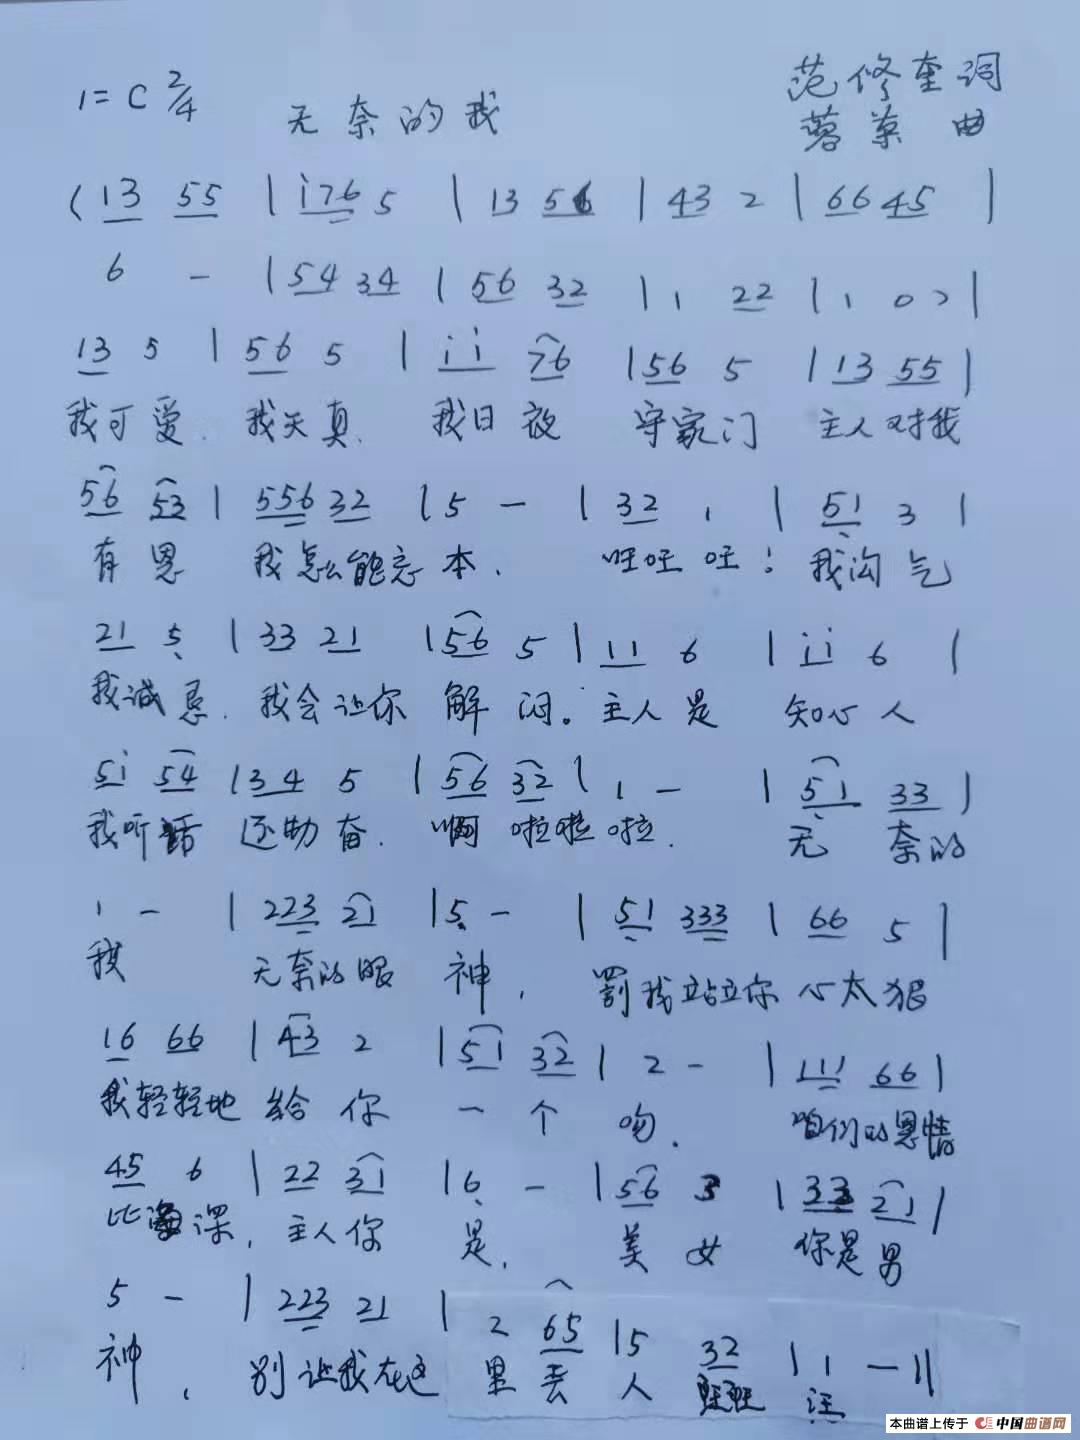 1=C 2/4
无奈的我
范修奎词
曲
( 13 55 | i76 5 | 13 56 | 43 2 | 66 45 |
6 - | 54 34 | 56 32 | 1 22 | 1 0 ) |
13 5 | 56 5 | i i 76 | 56 5 | 13 55 |
我可爱. 我天真. 我日夜 守家门 主人对我
56 53 | 556 32 | 5 - | 32 1 | 51 3 |
有恩 我怎么能忘本. 旺旺旺! 我淘气
21 5 | 33 21 | 56 5 | 11 6 | i i 6 |
我诚恳. 我会让你 解闷。主人是 知心人
5i 54 | 34 5 | 56 32 | 1 - | 51 33 |
我听话 还勤奋. 啊 啦啦啦. 无 奈的
1 - | 223 21 | 5 - | 51 333 | 66 5 |
我 无奈的眼 神, 罚我站立你 心太狠
16 66 | 43 2 | 51 32 | 2 - | 111 66 |
我轻轻地 给你 一个 吻. 咱们的恩情
45 6 | 22 31 | 6 - | 56 3 | 333 21 |
比海深, 主人你 是, 美女 你是男
5 - | 223 21 | 2 65 | 5 32 | 1 - ||
神, 别让我在这 里丢 人 旺旺 汪
本曲谱上传于 中国曲谱网